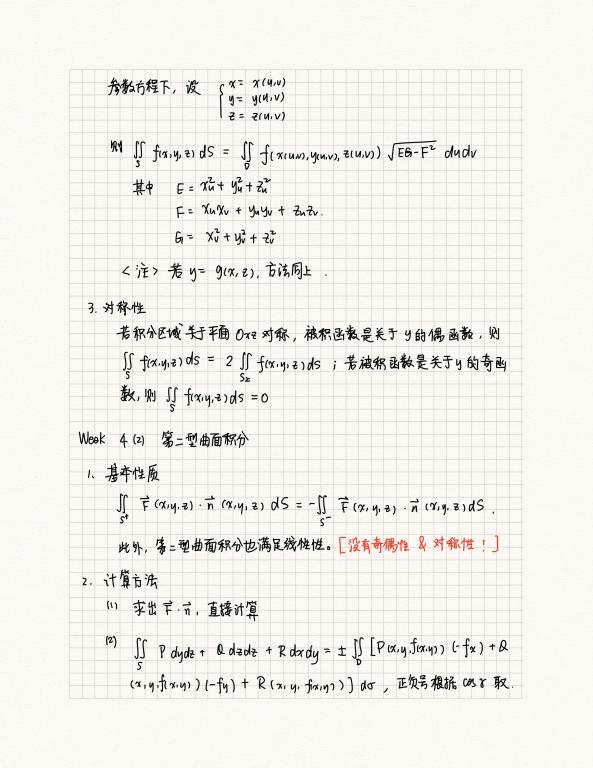 参数方程下，设 { x = x(u,v)
y = y(u,v)
z = z(u,v)
则 ∬_S f(x,y,z) dS = ∬_D f(x(u,v), y(u,v), z(u,v)) √(EG-F²) dudv
其中 E = x_u² + y_u² + z_u²
F = x_u x_v + y_u y_v + z_u z_v.
G = x_v² + y_v² + z_v²
<注> 若 y = g(x,z), 方法同上.
3. 对称性
若积分区域关于平面 Oxz 对称，被积函数是关于 y 的偶函数，则
∬_S f(x,y,z) dS = 2 ∬_{S_{½}} f(x,y,z) dS ；若被积函数是关于 y 的奇函
数，则 ∬_S f(x,y,z) dS = 0
Week 4 (2) 第二型曲面积分
1. 基本性质
∬_{S⁺} F⃗(x,y,z) · n⃗(x,y,z) dS = -∬_{S⁻} F⃗(x,y,z) · n⃗(x,y,z) dS.
此外，第二型曲面积分也满足线性性。[没有奇偶性 & 对称性！]
2. 计算方法
(1) 求出 F⃗·n⃗, 直接计算
(2) ∬_S P dydz + Q dzdz + R dxdy = ± ∬_D [P(x,y,f(x,y)) (-fx) + Q
(x,y,f(x,y)) (-fy) + R(x,y,f(x,y))] dσ , 正负号根据 cosγ 取.